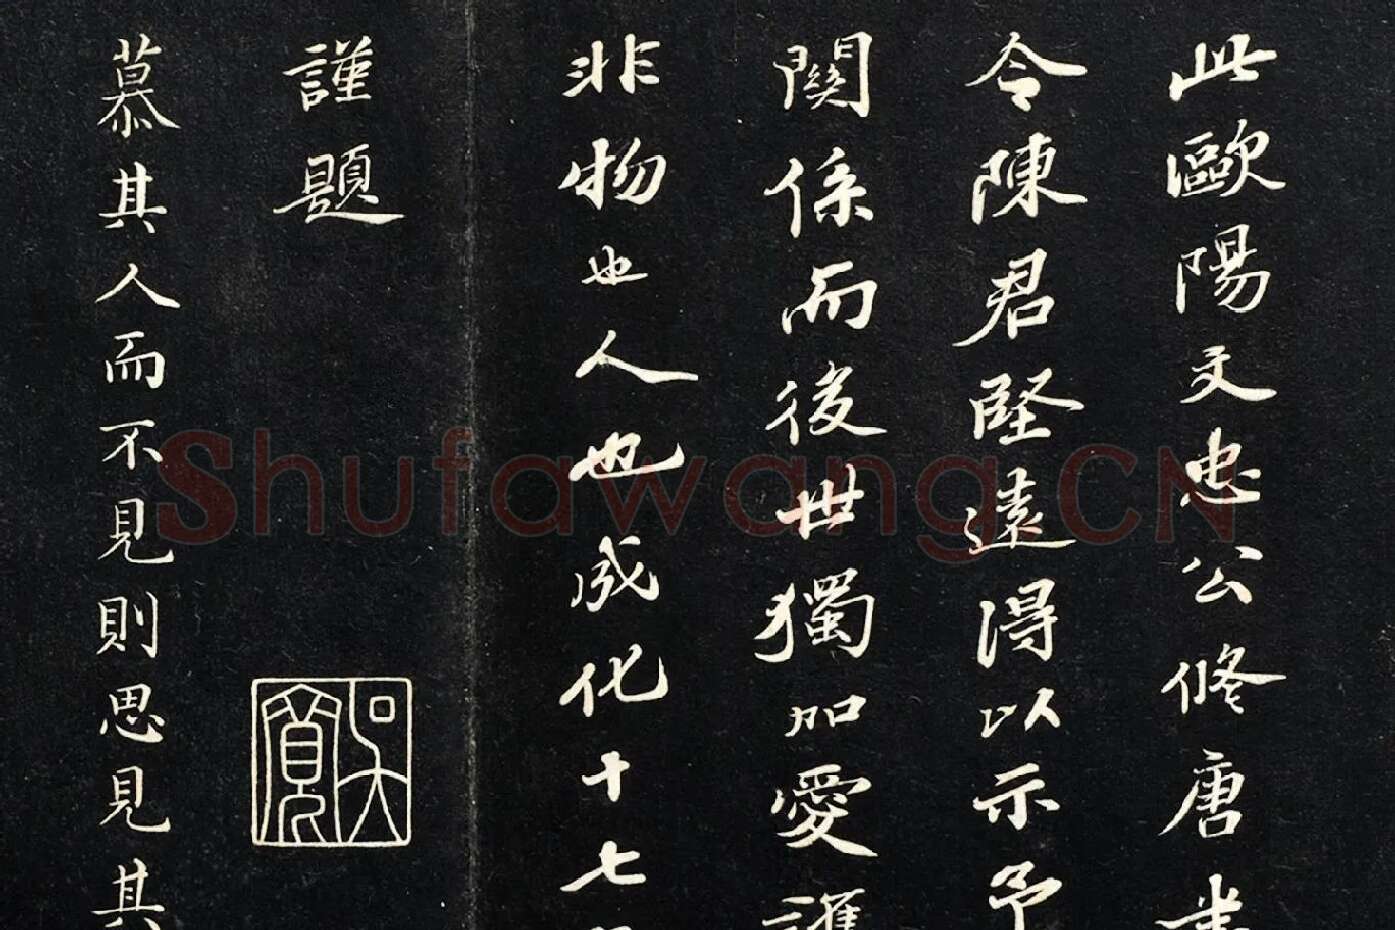 此歐陽文忠公修唐書
令陳君堅遠得以示予
關係而後世獨加愛護
非物也人也成化十七
謹題
吳寬
慕其人而不見則思見其
Shufawang.CN